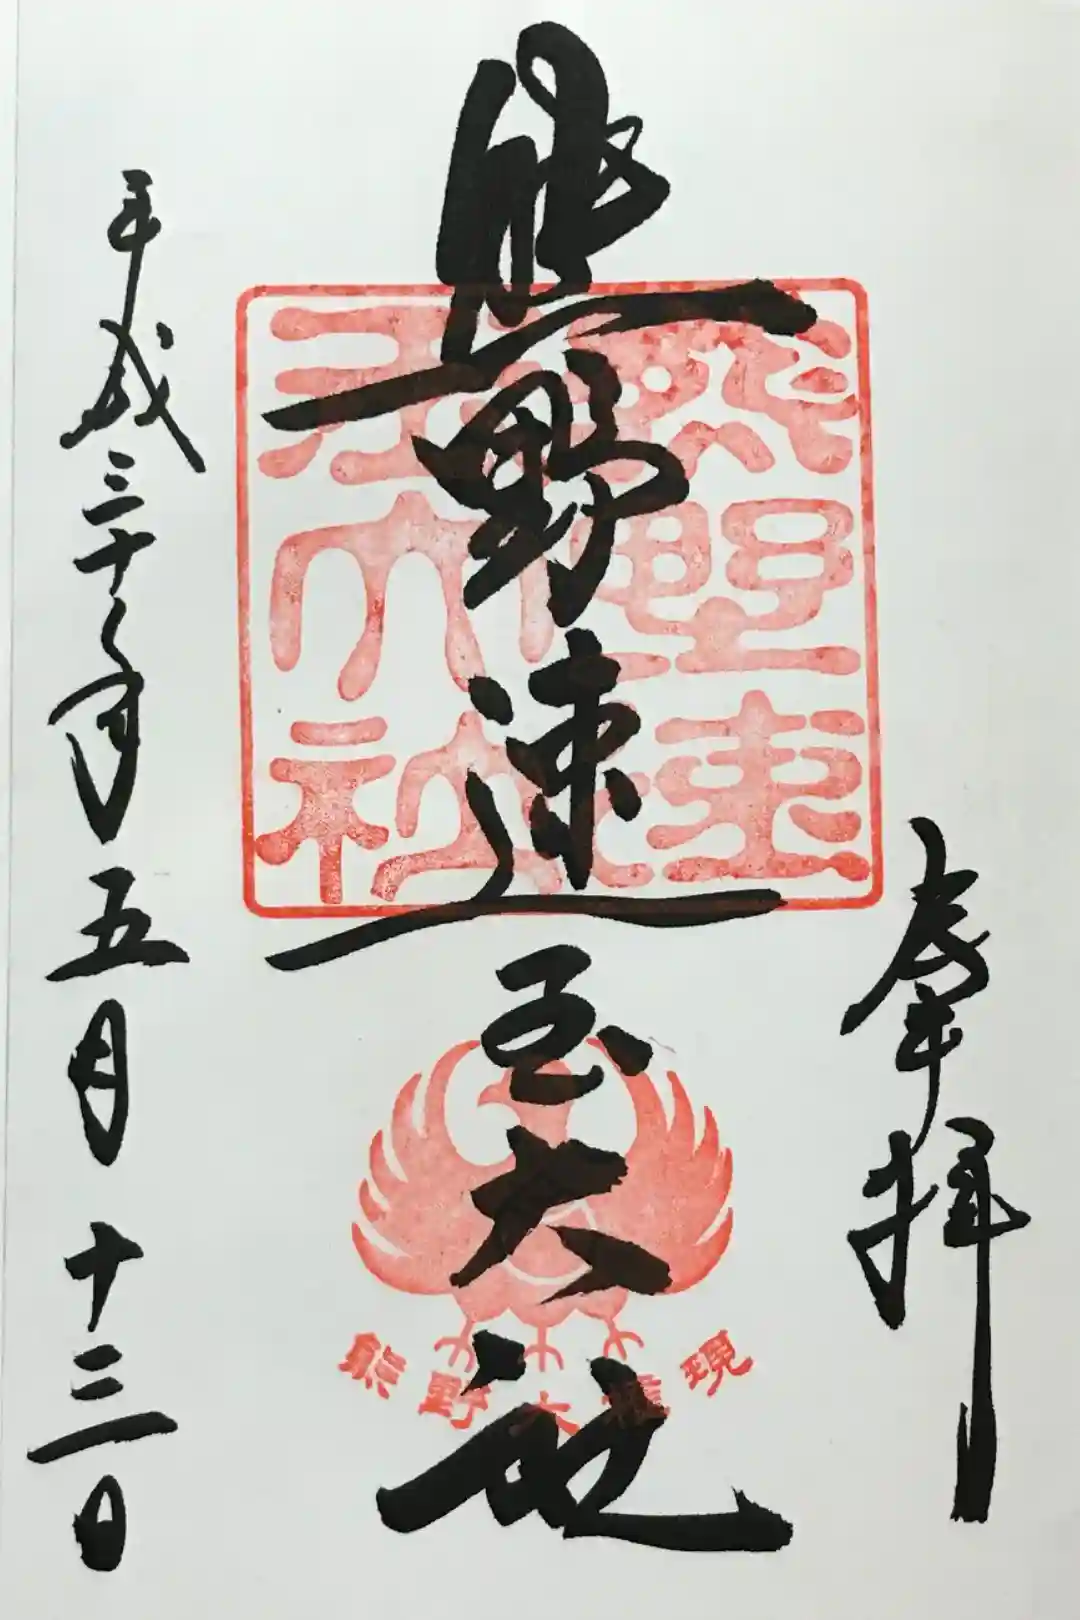 奉拝
熊野速玉大社
平成三十年五月十三日
熊野速
玉大社
熊野大権現